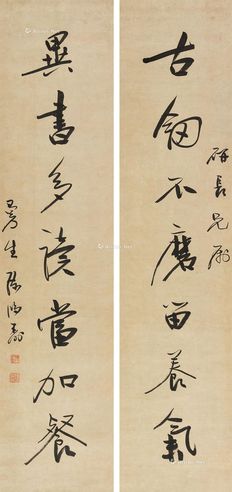 古劍不磨留養氣
研長兄屬
異書多讀當加餐
曼生陳鴻壽